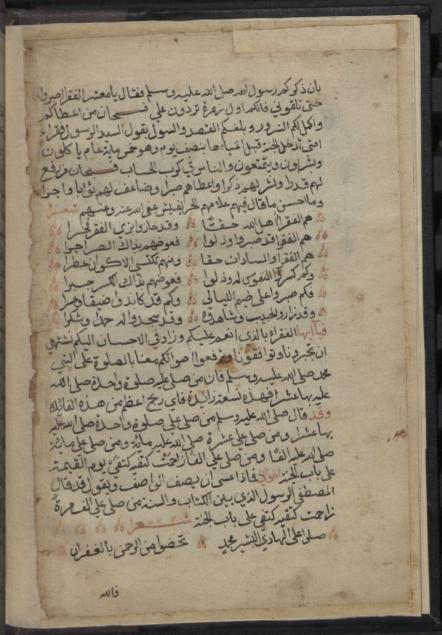 بان ذكركم رسول الله صلى الله عليه وسلم فقال يا معشر الفقرا اصبروا
حتى تلقوني فانكم اول زمرة تردون علي فسبحان من اعطاكم
واكمل لكم السرور وبلغكم القصد والسول يقول السيد الرسول فقراء
امتي تدخل الجنة قبل اغنياءها بنصف يوم وهو خمس ماية عام ياكلون
ويشربون ويتمتعون والناس في كرب الحساب فسبحان من رفع
لهم قدرا ونشر لهم ذكرا واعطاهم صبرا وضاعف لهم ثوابا واجرا
وما احسن ما قال فيهم غلامهم الحريفيش عفى الله عنه وعنهم شعر
هم الفقرا اهل الله حقا وقد حازوا بزي الفقر فخرا
هم الفقرا قد صبروا وذلوا فعوضهم بذاك الصبر اجرا
هم الفقرا والسادات حقا ومنهم تكتسي الاكوان عطرا
وكم كسروا النفوس له وذلوا فعوضهم بذاك الكسر جبرا
فكم صبروا على ضيم الليالي وكم قد كابدوا ضيقا وعسرا
وقد زاروا الحبيب وشاهدوه وقد سجدوا له حمدا وشكرا
فيا ايها الفقراء بالذي انعم عليكم وزاد في الاحسان اليكم نشتهي
ان تجبرونا وتوافقونا وترفعوا اصواتكم معنا بالصلوة على النبي
محمد صلى الله عليه وسلم فان من صلى عليه صلوة واحدة صلى الله
عليه بها عشرا فهذه تسعة زائدة فاي ربح اعظم من هذه الفائدة
وقد قال صلى الله عليه وسلم من صلى علي صلوة واحدة صلى الله عليه
بها عشرا ومن صلى علي عشرة صلى الله عليه ماية ومن صلى علي ماية
صلى الله عليه الفا ومن صلى علي الفا زاحمت كتفه كتفي يوم القيمة
على باب الجنة فماذا عسى ان يصف الواصف ويقول وقد قال
المصطفى الرسول الذي بين الكتاب والسنة من صلى علي الف مرة
زاحمت كتفه كتفي على باب الجنة شعر
صلوا على الهادي البشير محمد تحضوا من الرحمن بالغفران
فالله